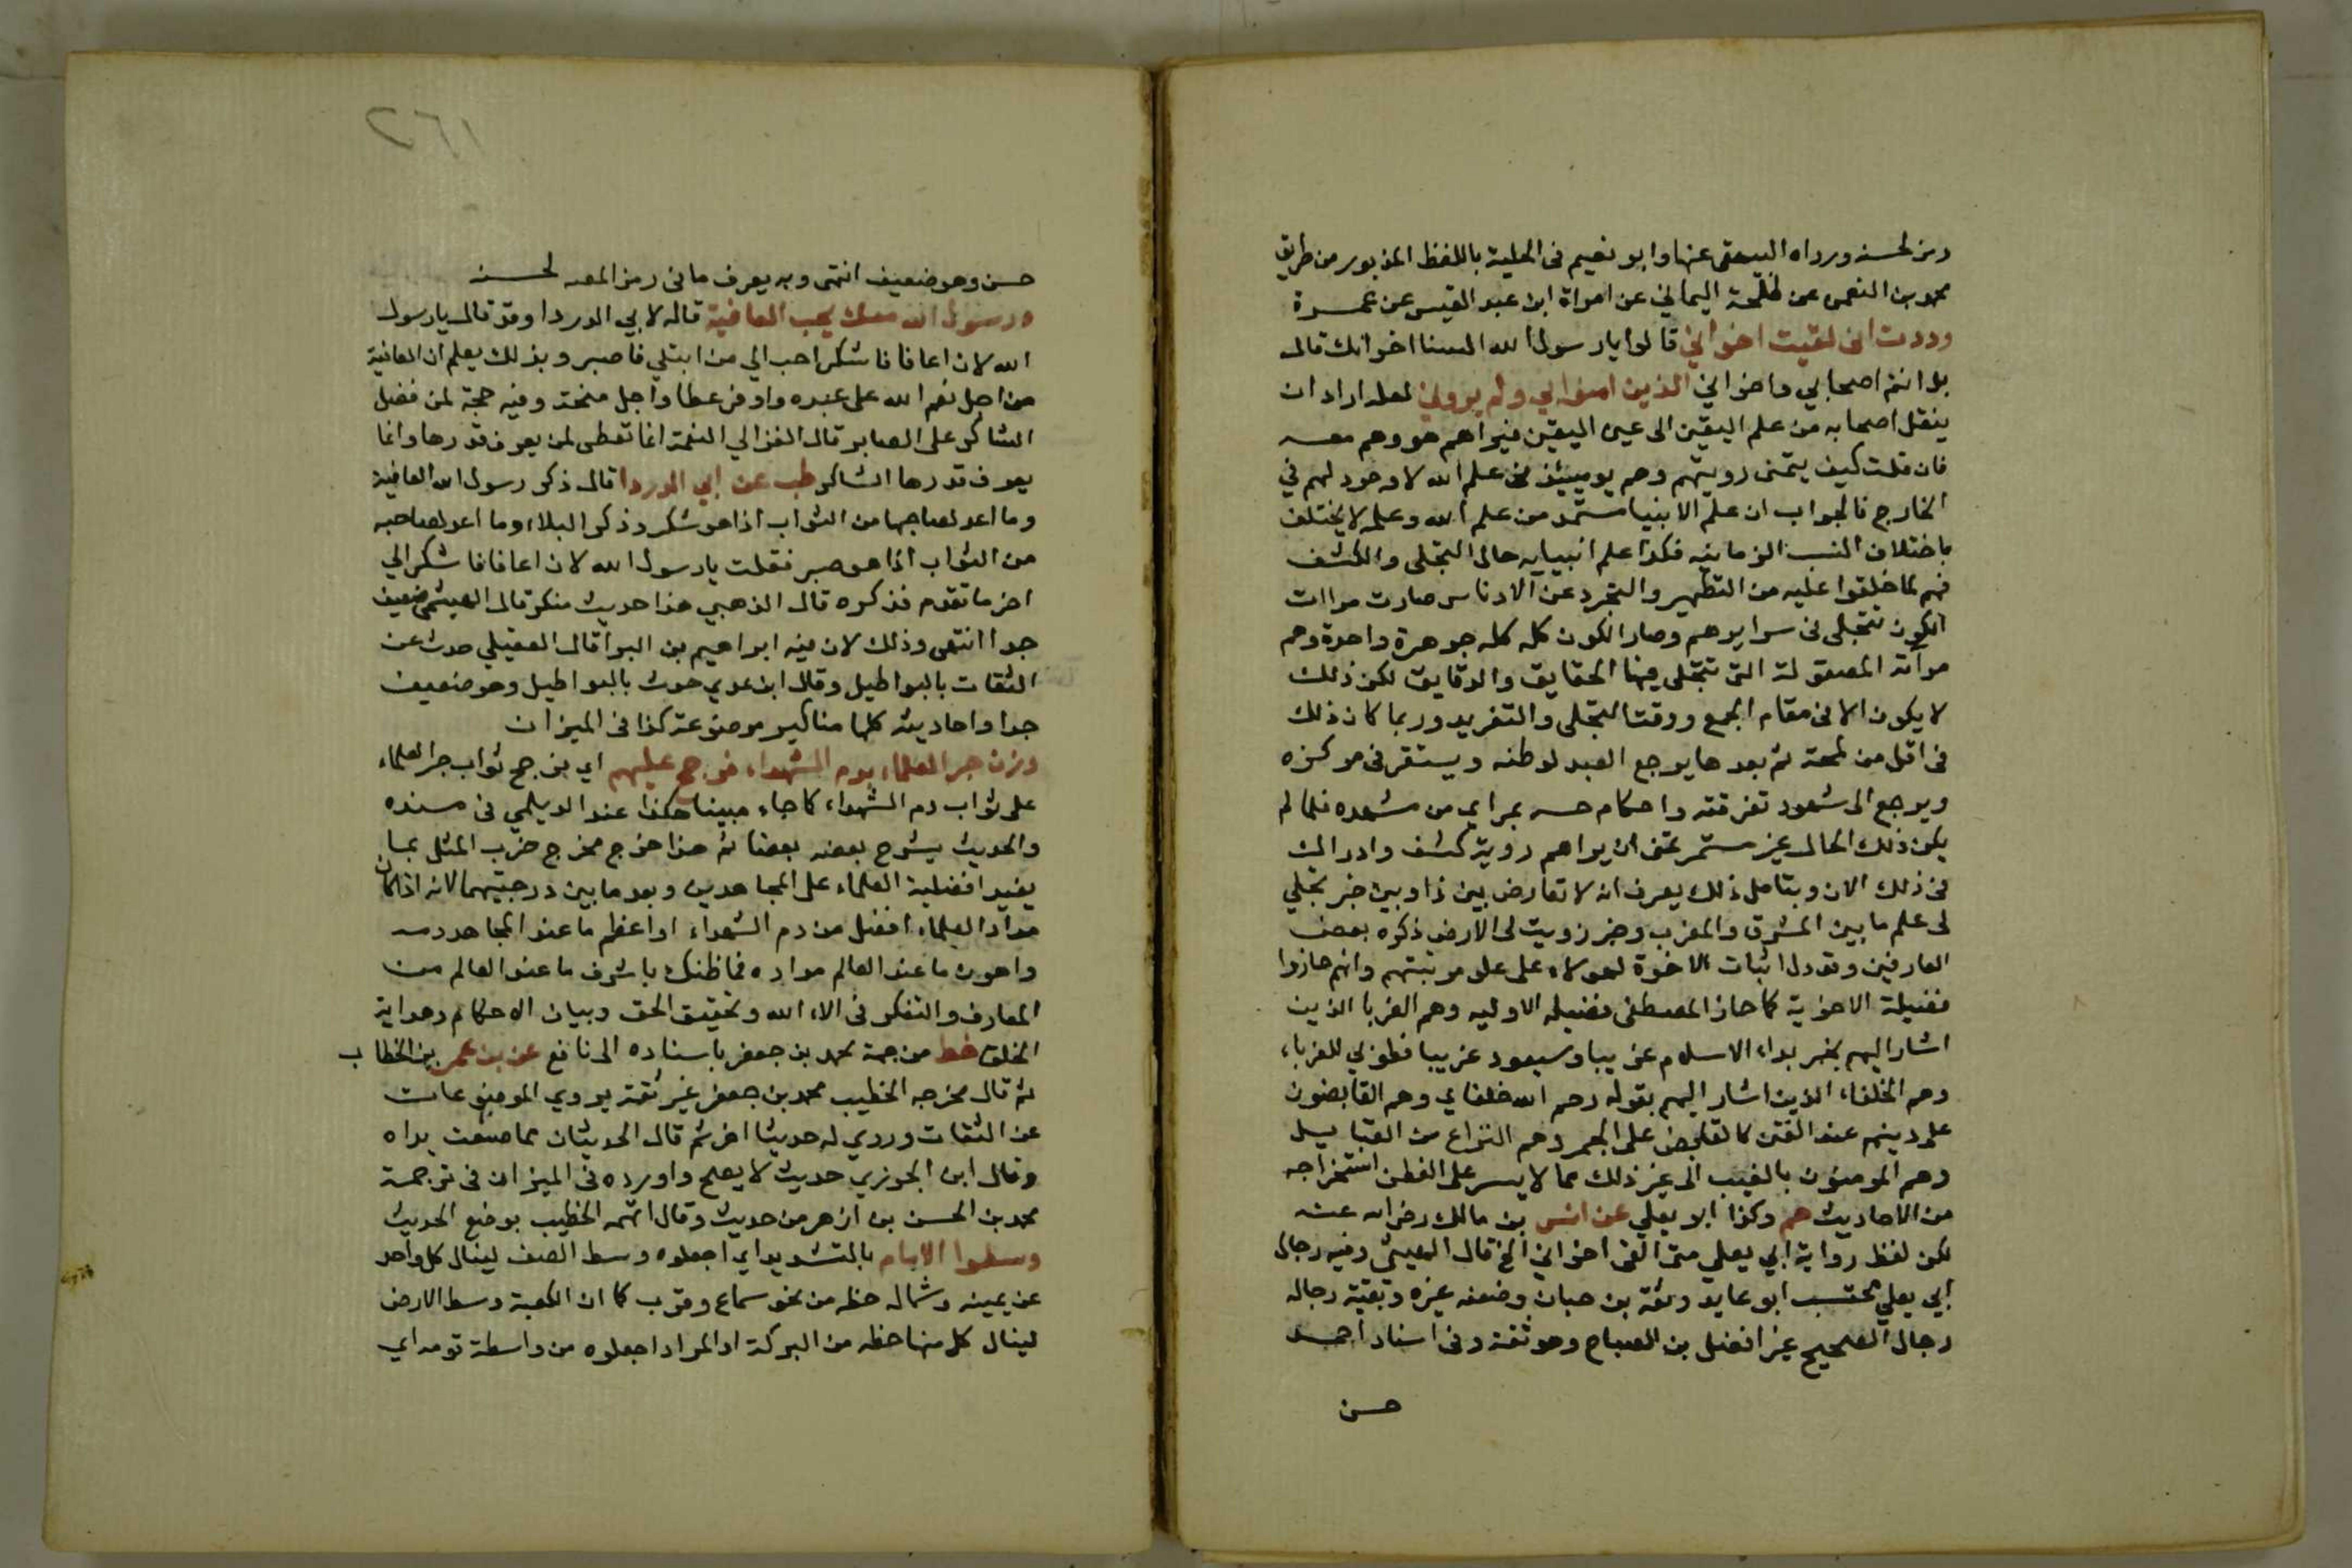 رمز لحسنه ورواه البيهقي عنها وابو نعيم فى الحلية باللفظ المذبور من طريق
محمد بن النعمى عن طلحة اليماني عن امراة ابن عبد القيس عن عمرة
وددت انى لقيت اخواني قالوا يارسول الله السنا اخوانك قال
بل انتم اصحابي واخواني الذين امنوا بي ولم يروني لعله اراد ان
ينقل اصحابه من علم اليقين الى عين اليقين فيراهم هو وهم معه
فان قلت كيف يتمنى رويتهم وهم يوميئذ فى علم الله لا وجود لهم في
الخارج فالجواب ان علم الانبيا مستمد من علم الله وعلمه لا يختلف
باختلاف النسب الزمانيه فكذا علم انبيايه حال التجلى والكشف
فهم لما خلقوا عليه من التطهير والتجرد عن الادناس صارت مراات
الكون تتجلى فى سرايرهم وصار الكون كله كله جوهرة واحدة وهم
مرآته المصقولة التى تتجلى فيها الحقايق والدقايق لكن ذلك
لا يكون الا فى مقام الجمع ووقت التجلى والتفريد وربما كان ذلك
فى اقل من لمحة ثم بعدها يرجع العبد لوطنه ويستقر فى مركزه
ويرجع الى شهود تفرقته واحكام حسه بمراي من مشهده فلما لم
يكن ذلك الحال غير مستمر تمنى ان يراهم روية كشف وادراك
فى ذلك الان وبتامل ذلك يعرف انه لا تعارض بين ذا وبين خبر تجلي
لى علم ما بين المشرق والمغرب وخبر زويت لى الارض ذكره بعض
العارفين وقد دل اثبات الاخوة لهولاء على علو مرتبتهم وانهم حازوا
فضيلة الاخرية كما حاز المصطفى فضيله الاوليه وهم الغربا الذين
اشار اليهم بخبر بداء الاسلام غريبا وسيعود غريبا فطوبي للغرباء
وهم الخلفاء الذين اشار اليهم بقوله رحم الله خلفاي وهم القابضون
على دينهم عند الفتن كالقابض على الجمر وهم النزاع من القبايل
وهم المومنون بالغيب الى غير ذلك مما لا يسر على الفطن استخراجه
من الاحاديث حم وكذا ابو يعلي عن انس بن مالك رضى الله عنه
لكن لفظ رواية ابي يعلي متى القى اخواني الخ قال الهيثمى وفيه رجال
ابي يعلي محتسب ابو عايد وثقة بن حبان وضعفه غيره وبقية رجاله
رجال الصحيح غير افضل بن الصباح وهو ثقة وفى اسناد احمد
حسن
٢٦١
حسن وهو ضعيف انتهى وبه يعرف ما فى رمز المص لحسنه
ورسول الله معك يحب العافية قاله لابي الدردا وقد قال يارسول
الله لان اعافا فاشكر احب الي من ابتلي فاصبر وبذلك يعلم ان العافية
من اجل نعم الله على عبده واوفر عطا واجل منحة وفيه حجة لمن فضل
الشاكر على الصابر قال الغزالي النعمة انما تعطى لمن يعرف قدرها وانما
يعرف قدرها الشاكر طب عن ابي الدردا قال ذكر رسول الله العافية
وما اعد لصاحبها من الثواب اذا هو شكر وذكر البلاء وما اعد لصاحبه
من الثواب اذا هو صبر فقلت يارسول الله لان اعافا فاشكر الي
اخر ما تقدم فذكره قال الذهبي هذا حديث منكر قال الهيثمى ضعيف
جدا انتهى وذلك لان فيه ابراهيم بن البرا قال العقيلي حدث عن
الثقات بالبواطيل وقال ابن عدي حدث بالبواطيل وهو ضعيف
جدا واحاديثه كلها مناكير موضوعة كذا فى الميزان
وزن حبر العلماء بدم الشهداء فرجح عليهم اي فرجح ثواب حبر العلماء
على ثواب دم الشهداء كما جاء مبينا هكذا عند الديلمي فى مسنده
والحديث يشرح بعضه بعضا ثم هذا خرج مخرج ضرب المثل بما
يفيد افضلية العلماء على المجاهدين وبعد ما بين درجتيهما لانه اذا كان
مداد العلماء افضل من دم الشهداء اواعظم ما عند المجاهد دمه
واهون ما عند العالم مداده فما ظنك باشرف ما عند العالم من
المعارف والتفكر فى الاء الله وتحقيق الحق وبيان الاحكام وهداية
الخلق خط من جهة محمد بن جعفر باسناده الى نافع عن بن عمر بن الخطاب
ثم قال مخرجه الخطيب محمد بن جعفر غير ثقة يروي الموضوعات
عن الثقات وروي له حديثا اخر ثم قال الحديثان مما صنعت يداه
وقال ابن الجوزي حديث لا يصح واورده فى الميزان فى ترجمة
محمد بن الحسن بن ازهر من حديثه وقال اتهمه الخطيب بوضع الحديث
وسطوا الامام بالتشديد اي اجعلوه وسط الصف لينال كل واحد
عن يمينه وشماله حظه من نحو سماع وقرب كما ان الكعبة وسط الارض
لينال كل منها حظه من البركة او المراد اجعلوه من واسطة قومه اي